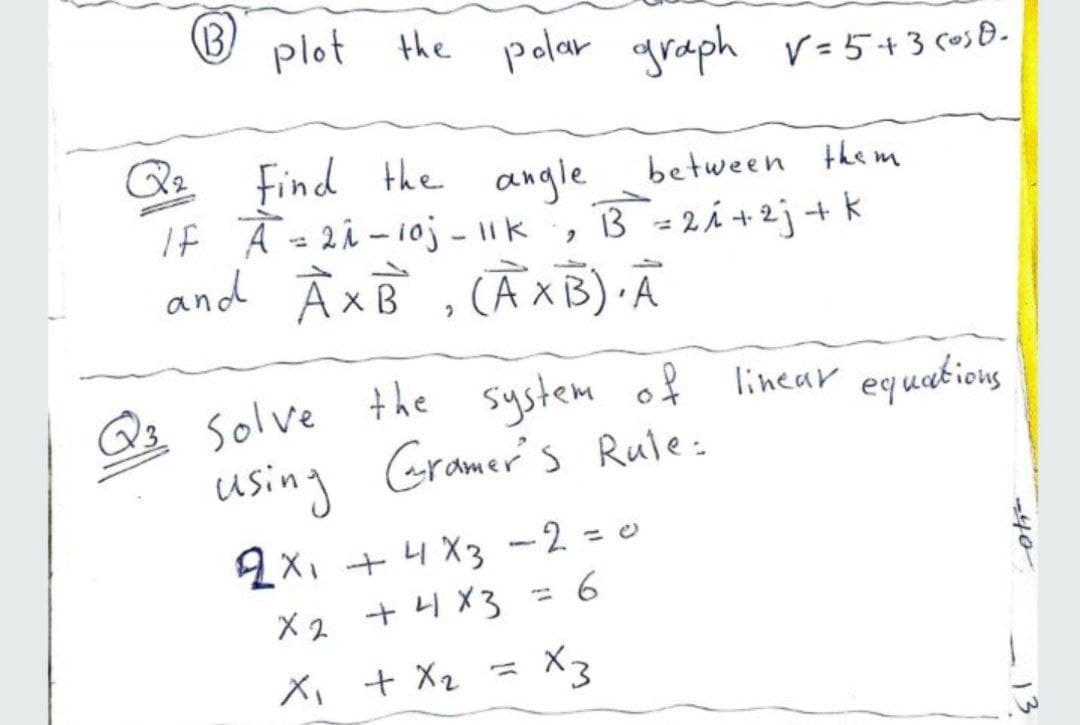 (B) plot the polar graph r = 5 + 3 cos θ.
Q2 Find the angle between them
If A⃗ = 2i - 10j - 11k , B⃗ = 2i + 2j + k
and A⃗ × B⃗ , (A⃗ × B⃗) · A⃗
Q3 Solve the system of linear equations
using Gramer's Rule:
2x₁ + 4x₃ - 2 = 0
x₂ + 4x₃ = 6
x₁ + x₂ = x₃